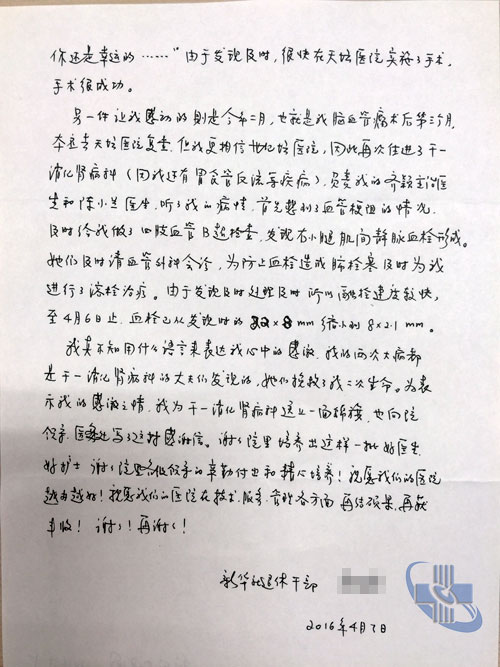 你还是幸运的……"由于发现及时,很快在天坛医院实施了手术,
手术很成功。
另一件让我感动的则是今年二月,也就是我脑血管瘤术后第三个月,
本应去天坛医院复查,但我更相信世纪坛医院,因此再次住进了干一
消化肾病科(因我还有胃食管反流等疾病),负责我的齐颖主治医
生和陈小兰医生,听了我的病情,首先想到了血管梗阻的情况,
及时给我做了四肢血管B超检查,发现右小腿肌间静脉血栓形成。
她们及时请血管外科会诊,为防止血栓造成肺栓塞及时为我
进行了溶栓治疗。由于发现及时处理及时所以融栓速度较快,
至4月6日止,血栓已从发现时的22×8mm缩小到8×2.1mm。
我真不知用什么语言来表达我心中的感激,我的两次大病都
是干一消化肾病科的大夫们发现的,她们挽救了我二次生命。为表
示我的感激之情,我为干一消化肾病科送上一面锦旗,也向院
领导、写了这封感谢信。谢谢院里培养出这样一批好医生
好护士,谢谢院领导的辛勤付出和精心培养!祝愿我们的医院
越办越好!祝愿我们的医院在技术、服务、管理各方面再结硕果,再获
丰收!谢谢!再谢谢!
新华社退休干部
2016年4月7日